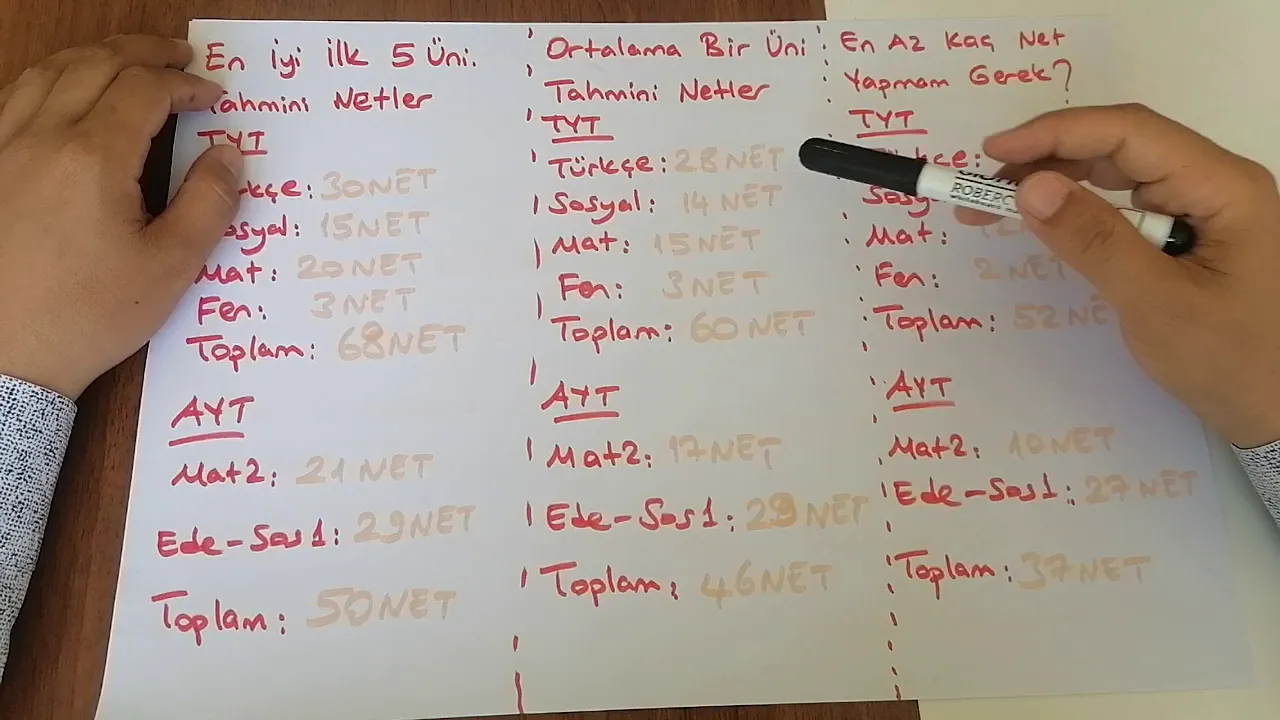 En iyi ilk 5 Üni.
Tahmini Netler
TYT
rkçe: 30 NET
osyal: 15 NET
Mat: 20 NET
Fen: 3 NET
Toplam: 68 NET
AYT
Mat2: 21 NET
Ede-Sos1: 29 NET
Toplam: 50 NET
Ortalama Bir Üni
Tahmini Netler
TYT
Türkçe: 28 NET
Sosyal: 14 NET
Mat: 15 NET
Fen: 3 NET
Toplam: 60 NET
AYT
Mat2: 17 NET
Ede-Sos1: 29 NET
Toplam: 46 NET
En Az Kaç Net
Yapmam Gerek?
TYT
Mat:
Fen: 2 NET
Toplam: 52 NE
AYT
Mat2: 10 NET
Ede-Sos1: 27 NET
Toplam: 37 NET